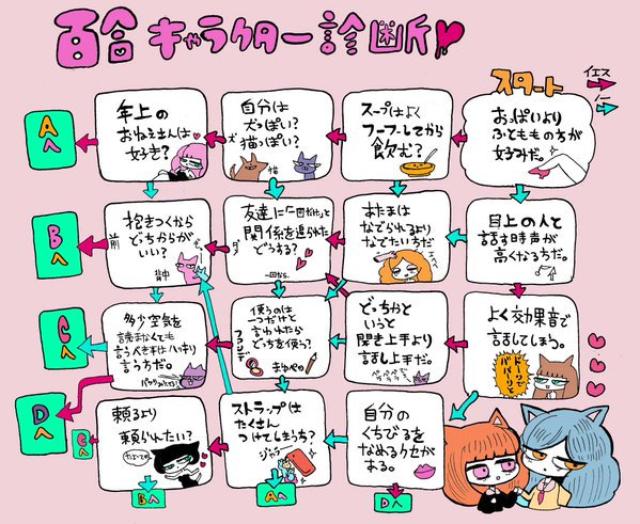 百合キャラクター診断
スタート
イエス
ノー
おっぱいより
ふとももの方が
好みだ。
スープはよく
フーフーしてから
飲む?
自分は
犬っぽい?
猫っぽい?
犬
猫
年上の
おねえさんは
好き?
Aへ
目上の人と
話す時声が
高くなる方だ。
あたまは
なでられるより
なでたい方だ
友達に「一回だけ」と
関係を迫られた
どうする?
ダメ
一回なら
抱きつくなら
どっちからが
いい?
前
背中
Bへ
よく効果音で
話してしまう。
ドーリで
パパーッと
どっちかと
いうと
聞き上手より
話し上手だ。
ペラペラペラ
使うのは
一つだけと
言われたら
どっちを使う?
ファンデ
まゆペン
多少空気を
読まなくても
言うべき事はハッキリ
言う方だ。
Cへ
自分の
くちびるを
なめるクセが
ある。
ストラップは
たくさん
つけてしまう方?
ジャラ
頼るより
頼られたい?
Dへ
Cへ
Bへ
Aへ
Dへ